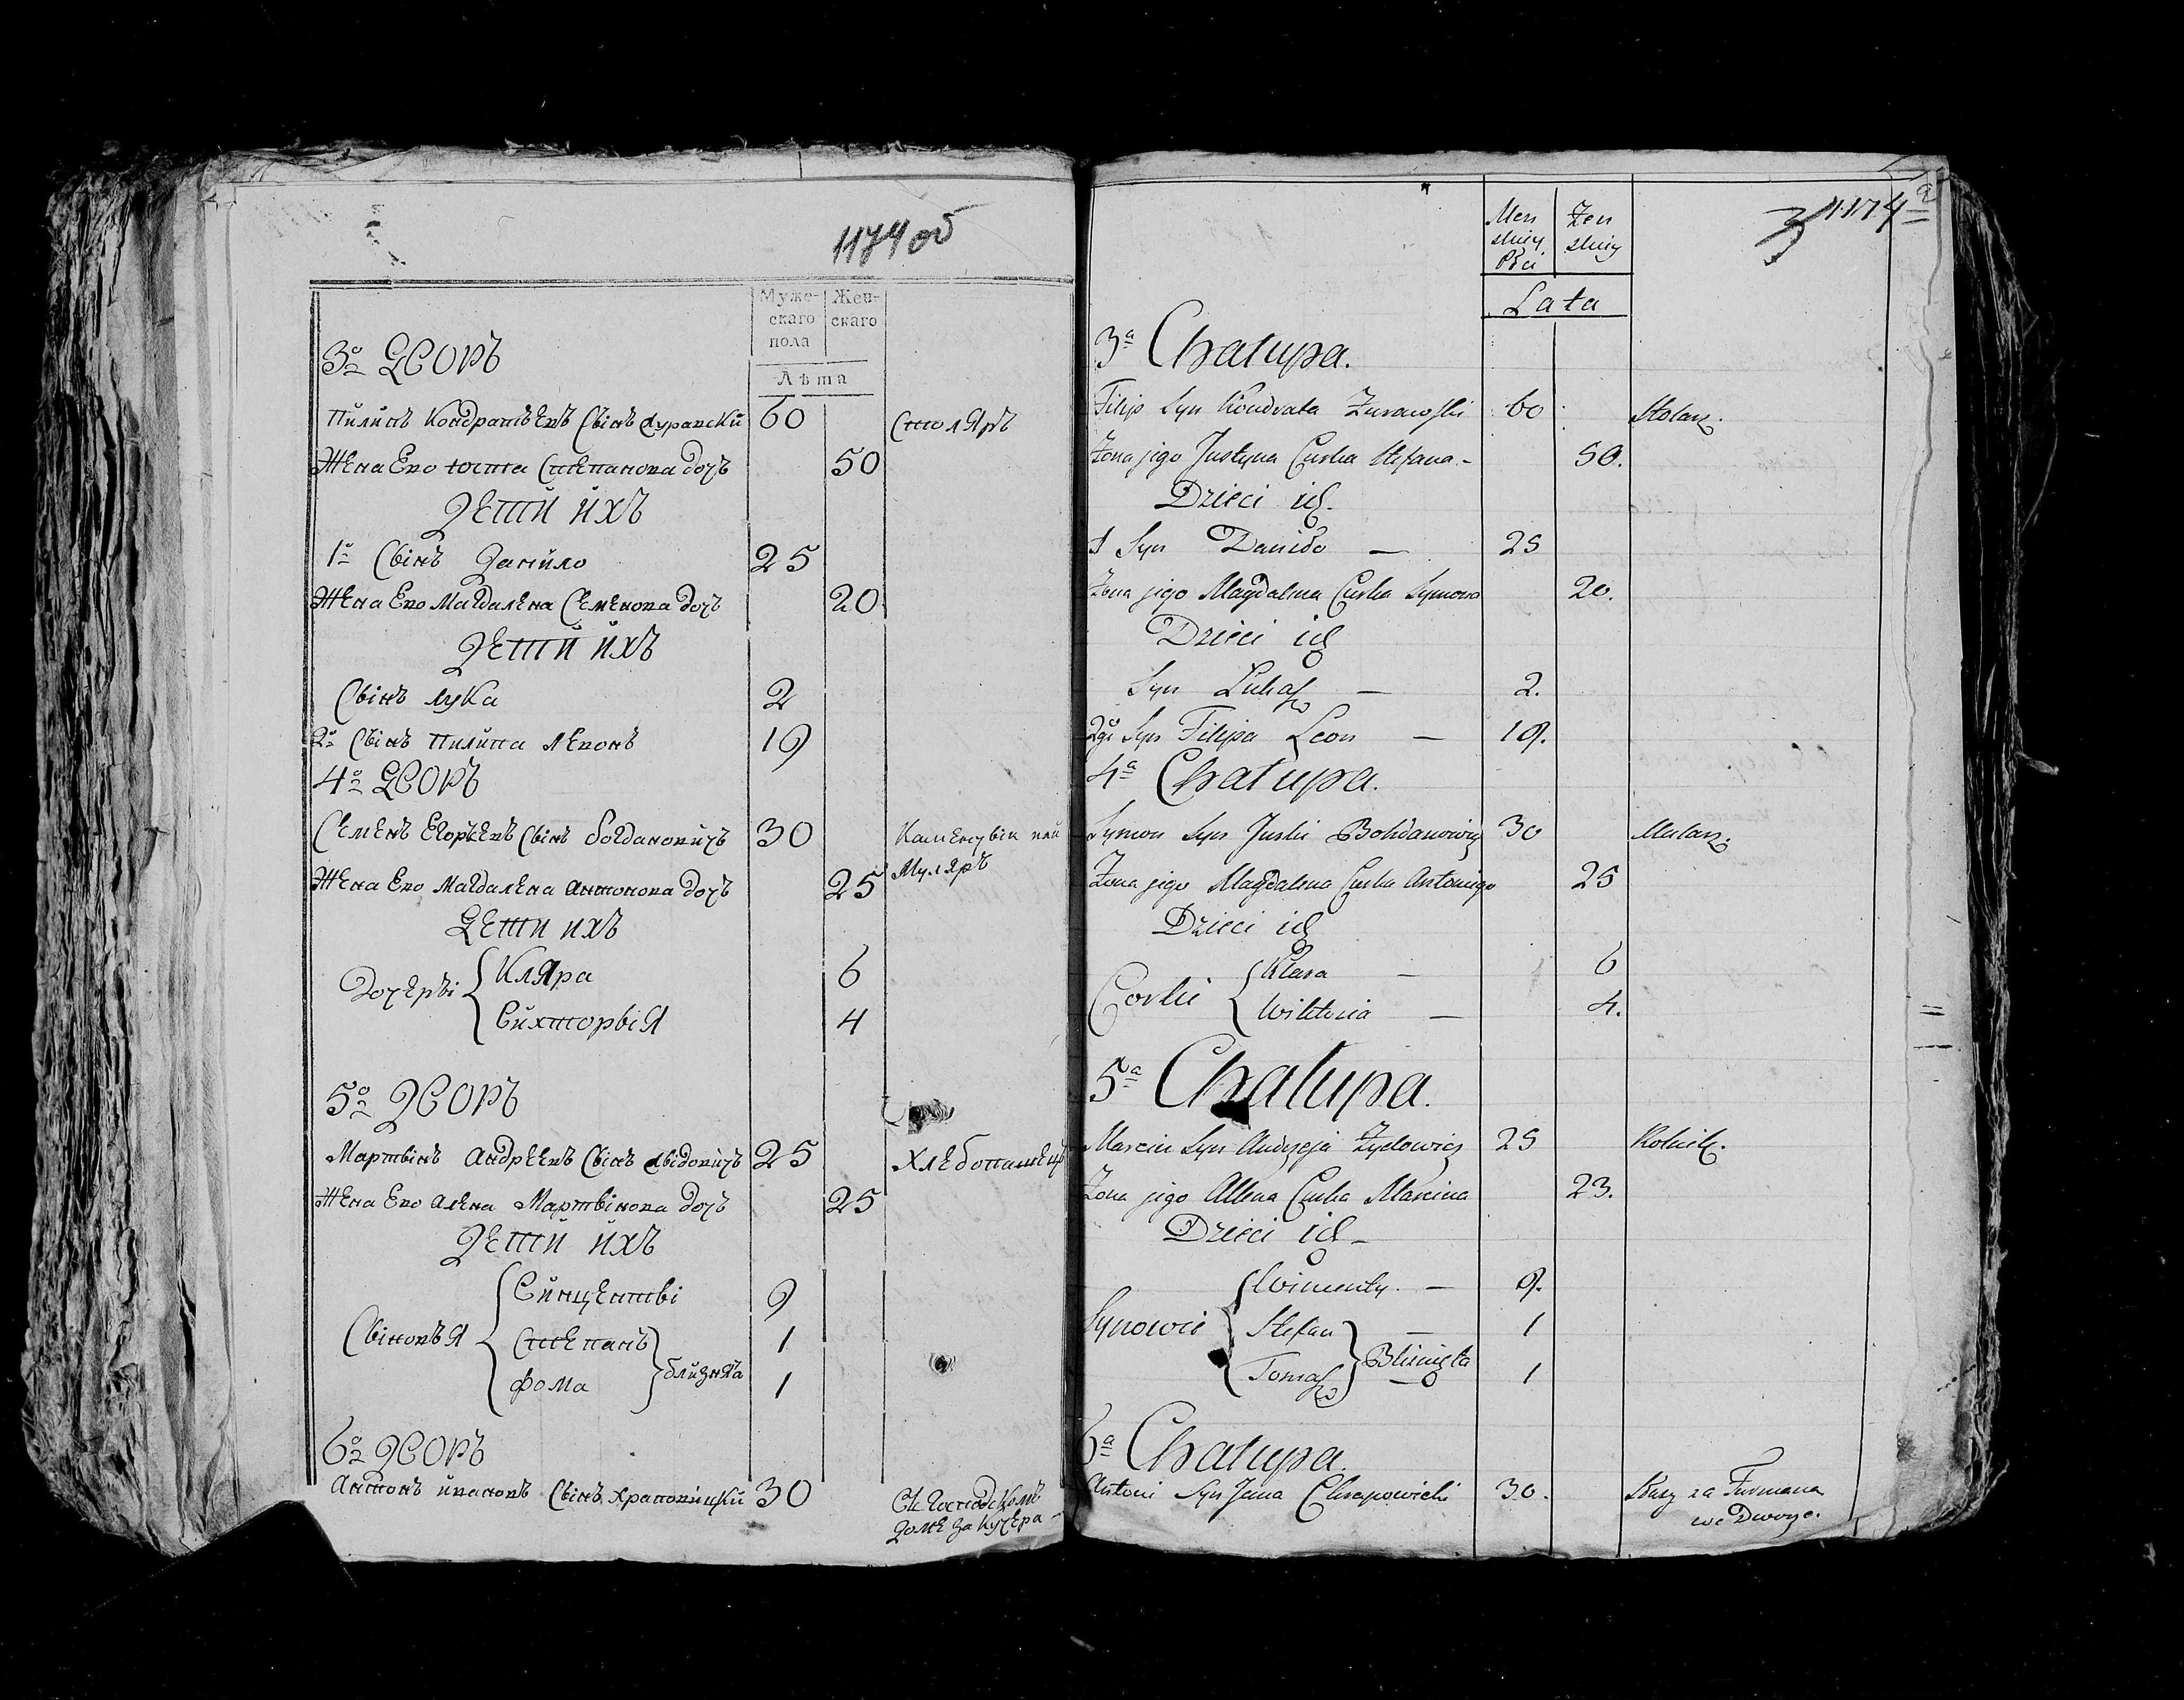 1174 об
Муже-
скаго
пола
Жен-
скаго
Лѣта
3о ДВОРЪ
Пилипъ Кондратьевъ Сынъ Журавский 60 Столяръ
Жена Его Юстта Степанова дочъ 50
ДЕТИ ИХЪ
1о Сынъ Данило 25
Жена Его Магдалена Семенова дочъ 20
ДЕТИ ИХЪ
Сынъ Лука 2
2о Сынъ Пилипа Левонъ 19
4о ДВОРЪ
Семенъ Егорьевъ Сынъ Богдановичъ 30
Муляръ
Жена Его Магдалена Антонова дочъ 25
ДЕТИ ИХЪ
Дочеры Кляра 6
Виктория 4
5о ДВОРЪ
Мартынъ Андреевъ Сынъ Жыдовичъ 25 Хлебопашецъ
Жена Его Алена Мартынова дочъ 25
ДЕТИ ИХЪ
Винценты 9
Сыновья Степанъ 1
Фома близнята 1
6о ДВОРЪ
Антонъ Ивановъ Сынъ Храповицки 30
Въ Господскомъ
доме за кучера
1174а
Men
skiey
Płci
Żen
skiey
Lata
3a Chałupa.
Filip Syn Kondrata Żurawski 60 Stolarz.
Żona jego Justyna Curka Stefana 50.
Dzieci ich
1 Syn Daniło 25
Żona jego Magdalena Curka Symona 20.
Dzieci ich
Syn Łukasz 2.
2gi Syn Filipa Leon 19.
4a Chałupa.
Symon Syn Jurki Bohdanowicz 30 Mularz.
Żona jego Magdalena Curka Antoniego 25
Dzieci ich
Corki Klara 6
Wiktoria 4.
5a Chałupa.
Marcin Syn Andrzeja Żydowicz 25 Rolnik.
Żona jego Allena Curka Marcina 23.
Dzieci ich
Wincenty. 9.
Synowie Stefan 1
Tomasz Blinięta 1
6a Chałupa.
Antoni Syn Jana Chrapowicki 30. Służy za Furmana
we Dworze.